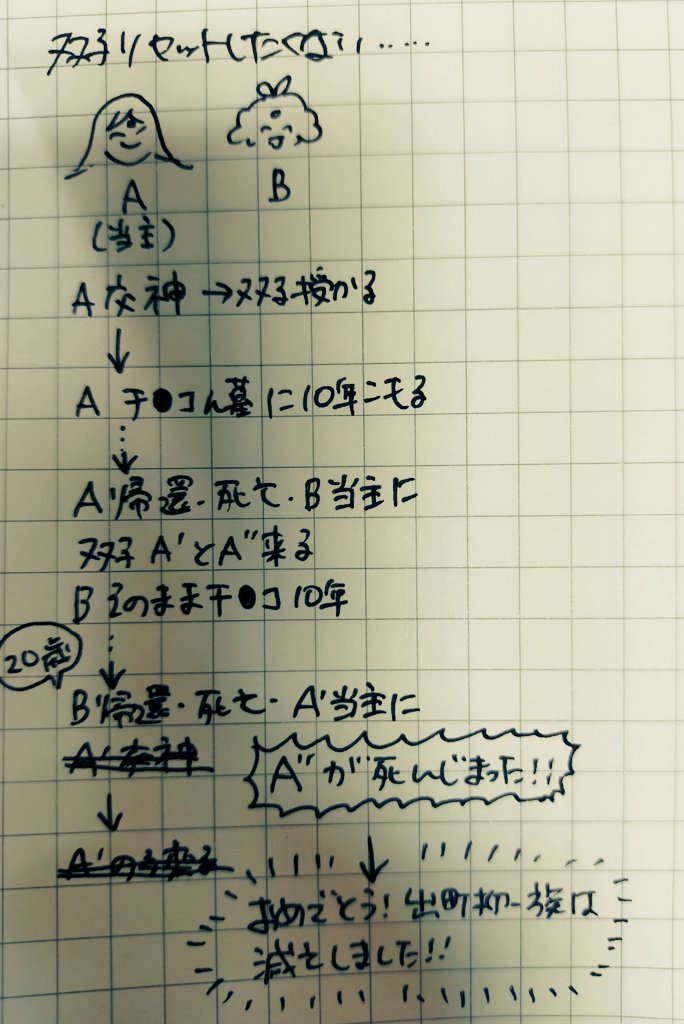 双子リセットしたくない……
A
B
(当主)
A 交神 →双子授かる
↓
A チ●コん墓に10年こもる
↓
A 帰還・死亡・B当主に
双子 A'とA"来る
Bそのままチ●コ10年
20歳
↓
B 帰還・死亡・A'当主に
A' 交神
A"が死んじまった!!
↓
A'の子来る
↓
おめでとう!出町柳一族は
滅亡しました!!